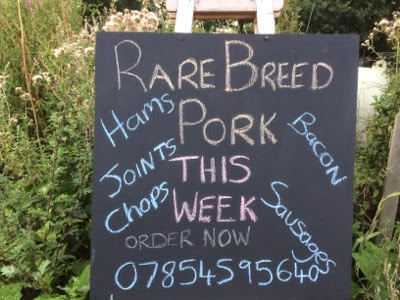 RARE BREED
PORK
THIS
WEEK
Hams
JOINTS
Chops
BACON
Sausages
ORDER NOW
07854595640